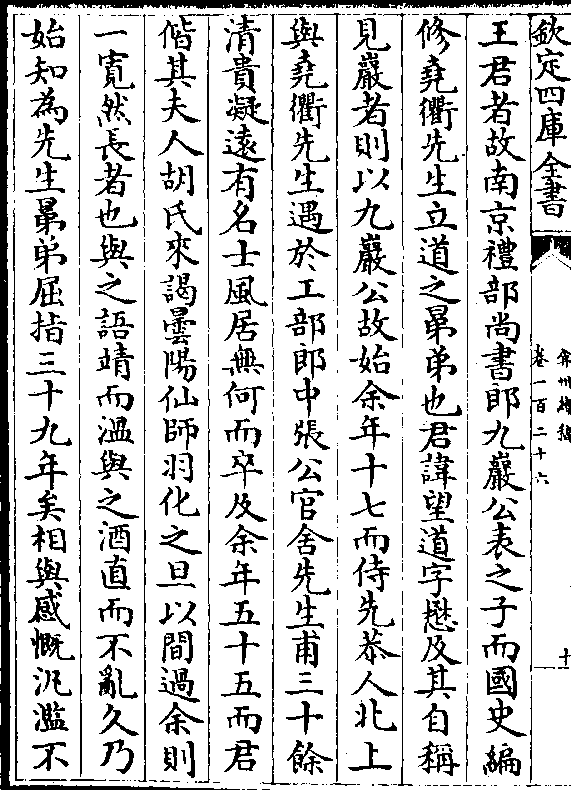 欽定四庫全書
弇州續稿
卷一百二十六
十
王君者故南京禮部尚書郎九巖公表之子而國史編
修堯衢先生立道之㫷弟也君諱望道字懋及其自稱
見巖者則以九巖公故始余年十七而侍先恭人北上
與堯衢先生遇於工部郎中張公官舍先生甫三十餘
清貴凝遠有名士風居無何而卒及余年五十五而君
偕其夫人胡氏來謁曇陽仙師羽化之旦以間過余則
一寛然長者也與之語靖而溫與之酒直而不亂久乃
始知為先生㫷弟屈指三十九年矣相與感慨汎濫不